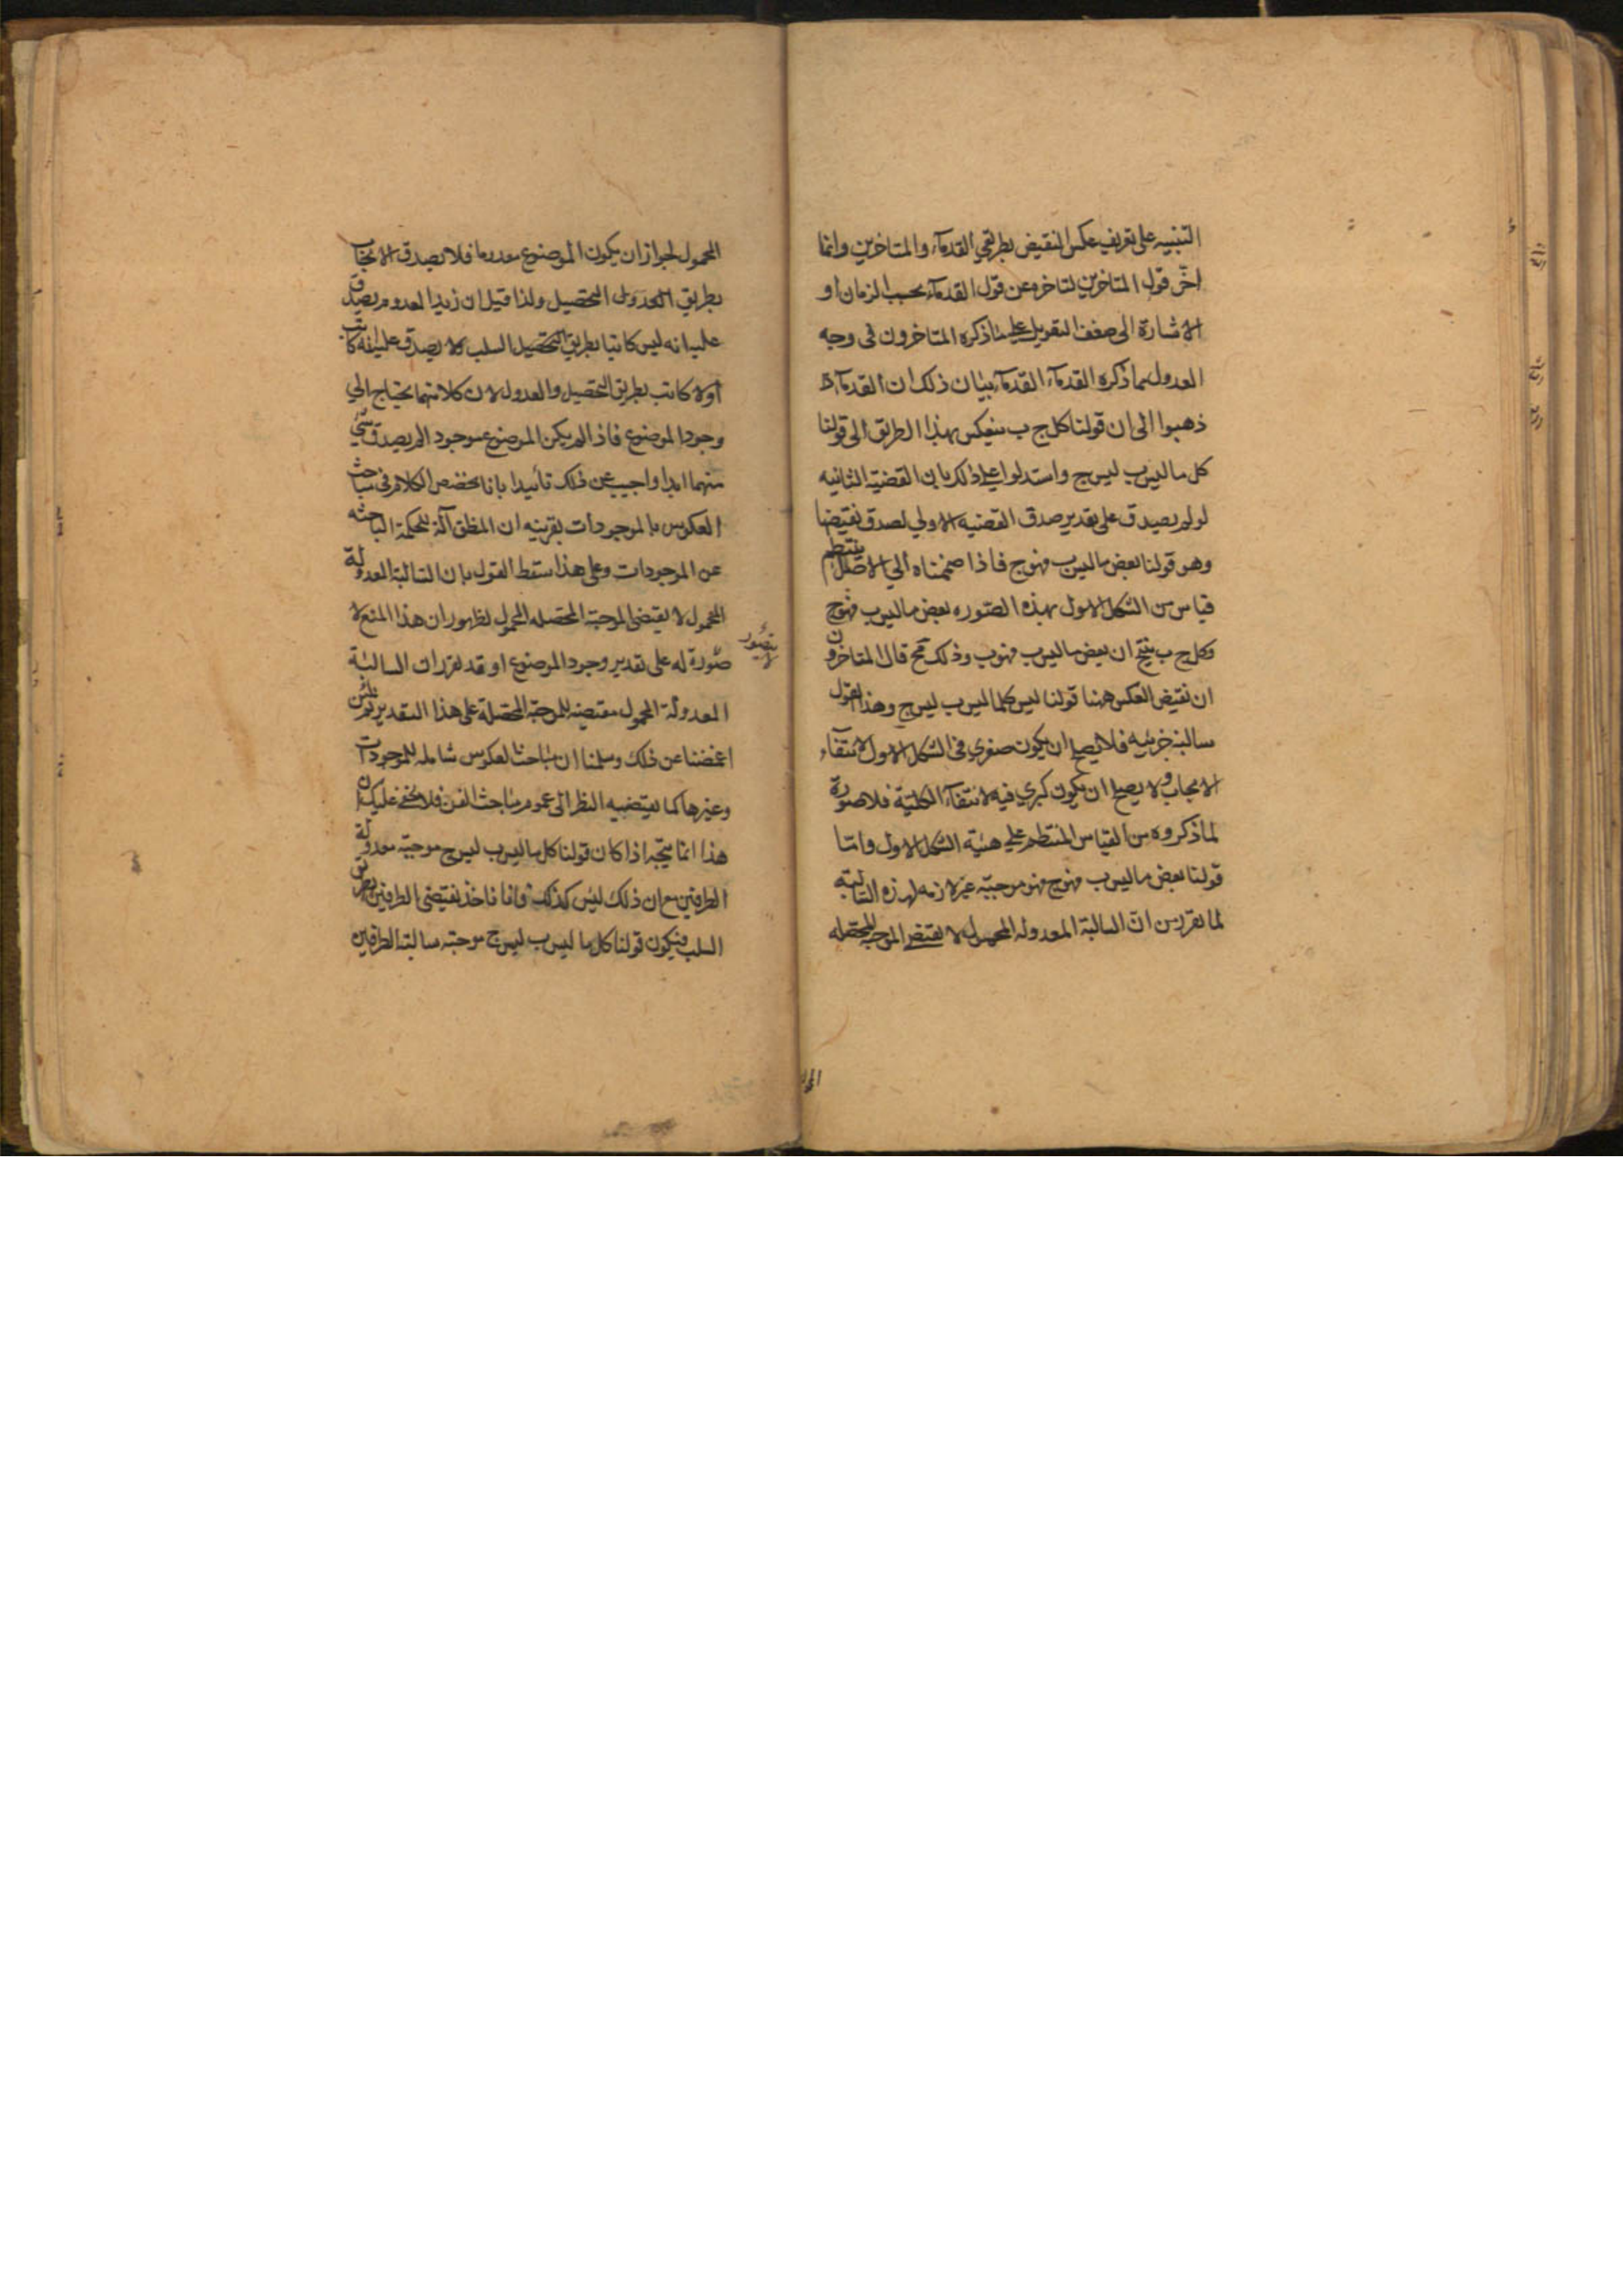 التنبيه على تعريف عكس النقيض بطريقي القدماء والمتاخرين وانما
اخّر قول المتاخرين لتاخره عن قول القدماء بحسب الزمان او
الاشارة الى ضعف التعويل على ما ذكره المتاخرون فى وجه
العدول عما ذكره القدماء القدماء بيان ذلك ان القدماء
ذهبوا الى ان قولنا كل ج ب ينعكس بهذا الطريق الى قولنا
كل ما ليس ب ليس ج واستدلوا على ذلك بان القضية الثانيه
لو لم يصدق على تقدير صدق القضيه الاولي لصدق نقيضها
وهو قولنا بعض ما ليس ب فهو ج فاذا ضممناه الي الاصل ينتظم
قياس من الشكل الاول بهذه الصوره بعض ما ليس ب فهو ج
وكل ج ب ينتج ان بعض ما ليس ب فهو ب وذلك مح قال المتاخرون
ان نقيض العكس ههنا قولنا ليس كلما ليس ب ليس ج وهذا القول
سالبة جزئيه فلا يصح ان يكون صغري فى الشكل الاول لانتفاء
الايجاب ولا يصح ان يكون كبري فيه لانتفاء الكلية فلا صورة
لما ذكروه من القياس المنتظم علي هيئة الشكل الاول واما
قولنا بعض ما ليس ب فهو ج فهو موجبة غير لازمه لهذه السالبة
لما تقرر من ان السالبة المعدوله المحمول لا يقتضى الموجبه المحصله
المحمول لجواز ان يكون الموضوع معدوما فلا يصدق الايجاب
بطريق العدول التحصيل ولذا قيل ان زيدا المعدوم يصدق
عليه انه ليس كاتبا بطريق التحصيل السلب ولا يصدق عليه انه كاتب
او لا كاتب بطريق التحصيل والعدول لان كلا منهما يحتاج الي
وجود الموضوع فاذا لم يكن الموضوع موجودا لم يصدق شي
منهما ابدا واجيب عن ذلك تأييدا بانا نخصص الكلام فى مباحث
العكوس بالموجودات بقرينه ان المنطق آلة للحكمة الباحثه
عن الموجودات وعلى هذا سقط القول بان السالبة المعدولة
المحمول لا يقتضى الموجبة المحصله المحمول لظهور ان هذا المنع لا
لا يتصور
صورة له على تقدير وجود الموضوع او قد تقرر ان السالبة
المعدولة المحمول مقتضيه للموجبة المحصلة على هذا التقدير ثم لئن
اغمضنا عن ذلك وسلمنا ان مباحث العكوس شامله للموجودات
وغيرها كما يقتضيه النظر الى عموم مباحث الفن فلا يخفى عليك ان
هذا انما يتجه اذا كان قولنا كل ما ليس ب ليس ج موجبة معدولة
الطرفين مع ان ذلك ليس كذلك فانا ناخذ نقيضى الطرفين بطريق
السلب فيكون قولنا كل ما ليس ب ليس ج موجبة سالبة الطرفين